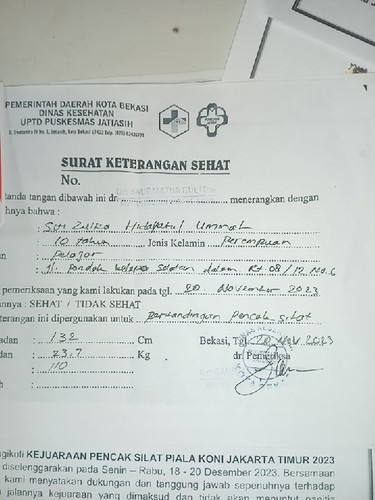 PEMERINTAH DAERAH KOTA BEKASI
DINAS KESEHATAN
UPTD PUSKESMAS JATIASIH
SURAT KETERANGAN SEHAT
No.
tanda tangan dibawah ini dr. menerangkan dengan
haya bahwa :
: Siti Zulfa Hidayatul Ummah
: 10 tahun Jenis Kelamin : Perempuan
: Pelajar
: Jl. Pondok kelapa selatan dalam Rt 08/12 No.6
pemeriksaan yang kami lakukan pada tgl. 20 November 2023
annya : SEHAT / TIDAK SEHAT
terangan ini dipergunakan untuk Pertandingan Pencak silat
adan : 132 Cm Bekasi, Tgl 20 Nov 2023
dan : 23,7 Kg dr. Pemeriksa
: 110
h :
gikuti KEJUARAAN PENCAK SILAT PIALA KONI JAKARTA TIMUR 2023
diselenggarakan pada Senin – Rabu, 18 - 20 Desember 2023. Bersamaan
kami menyatakan dukungan dan tanggung jawab sepenuhnya terhadap
jalannya kejuaraan yang dimaksud dan tidak akan menuntut panitia